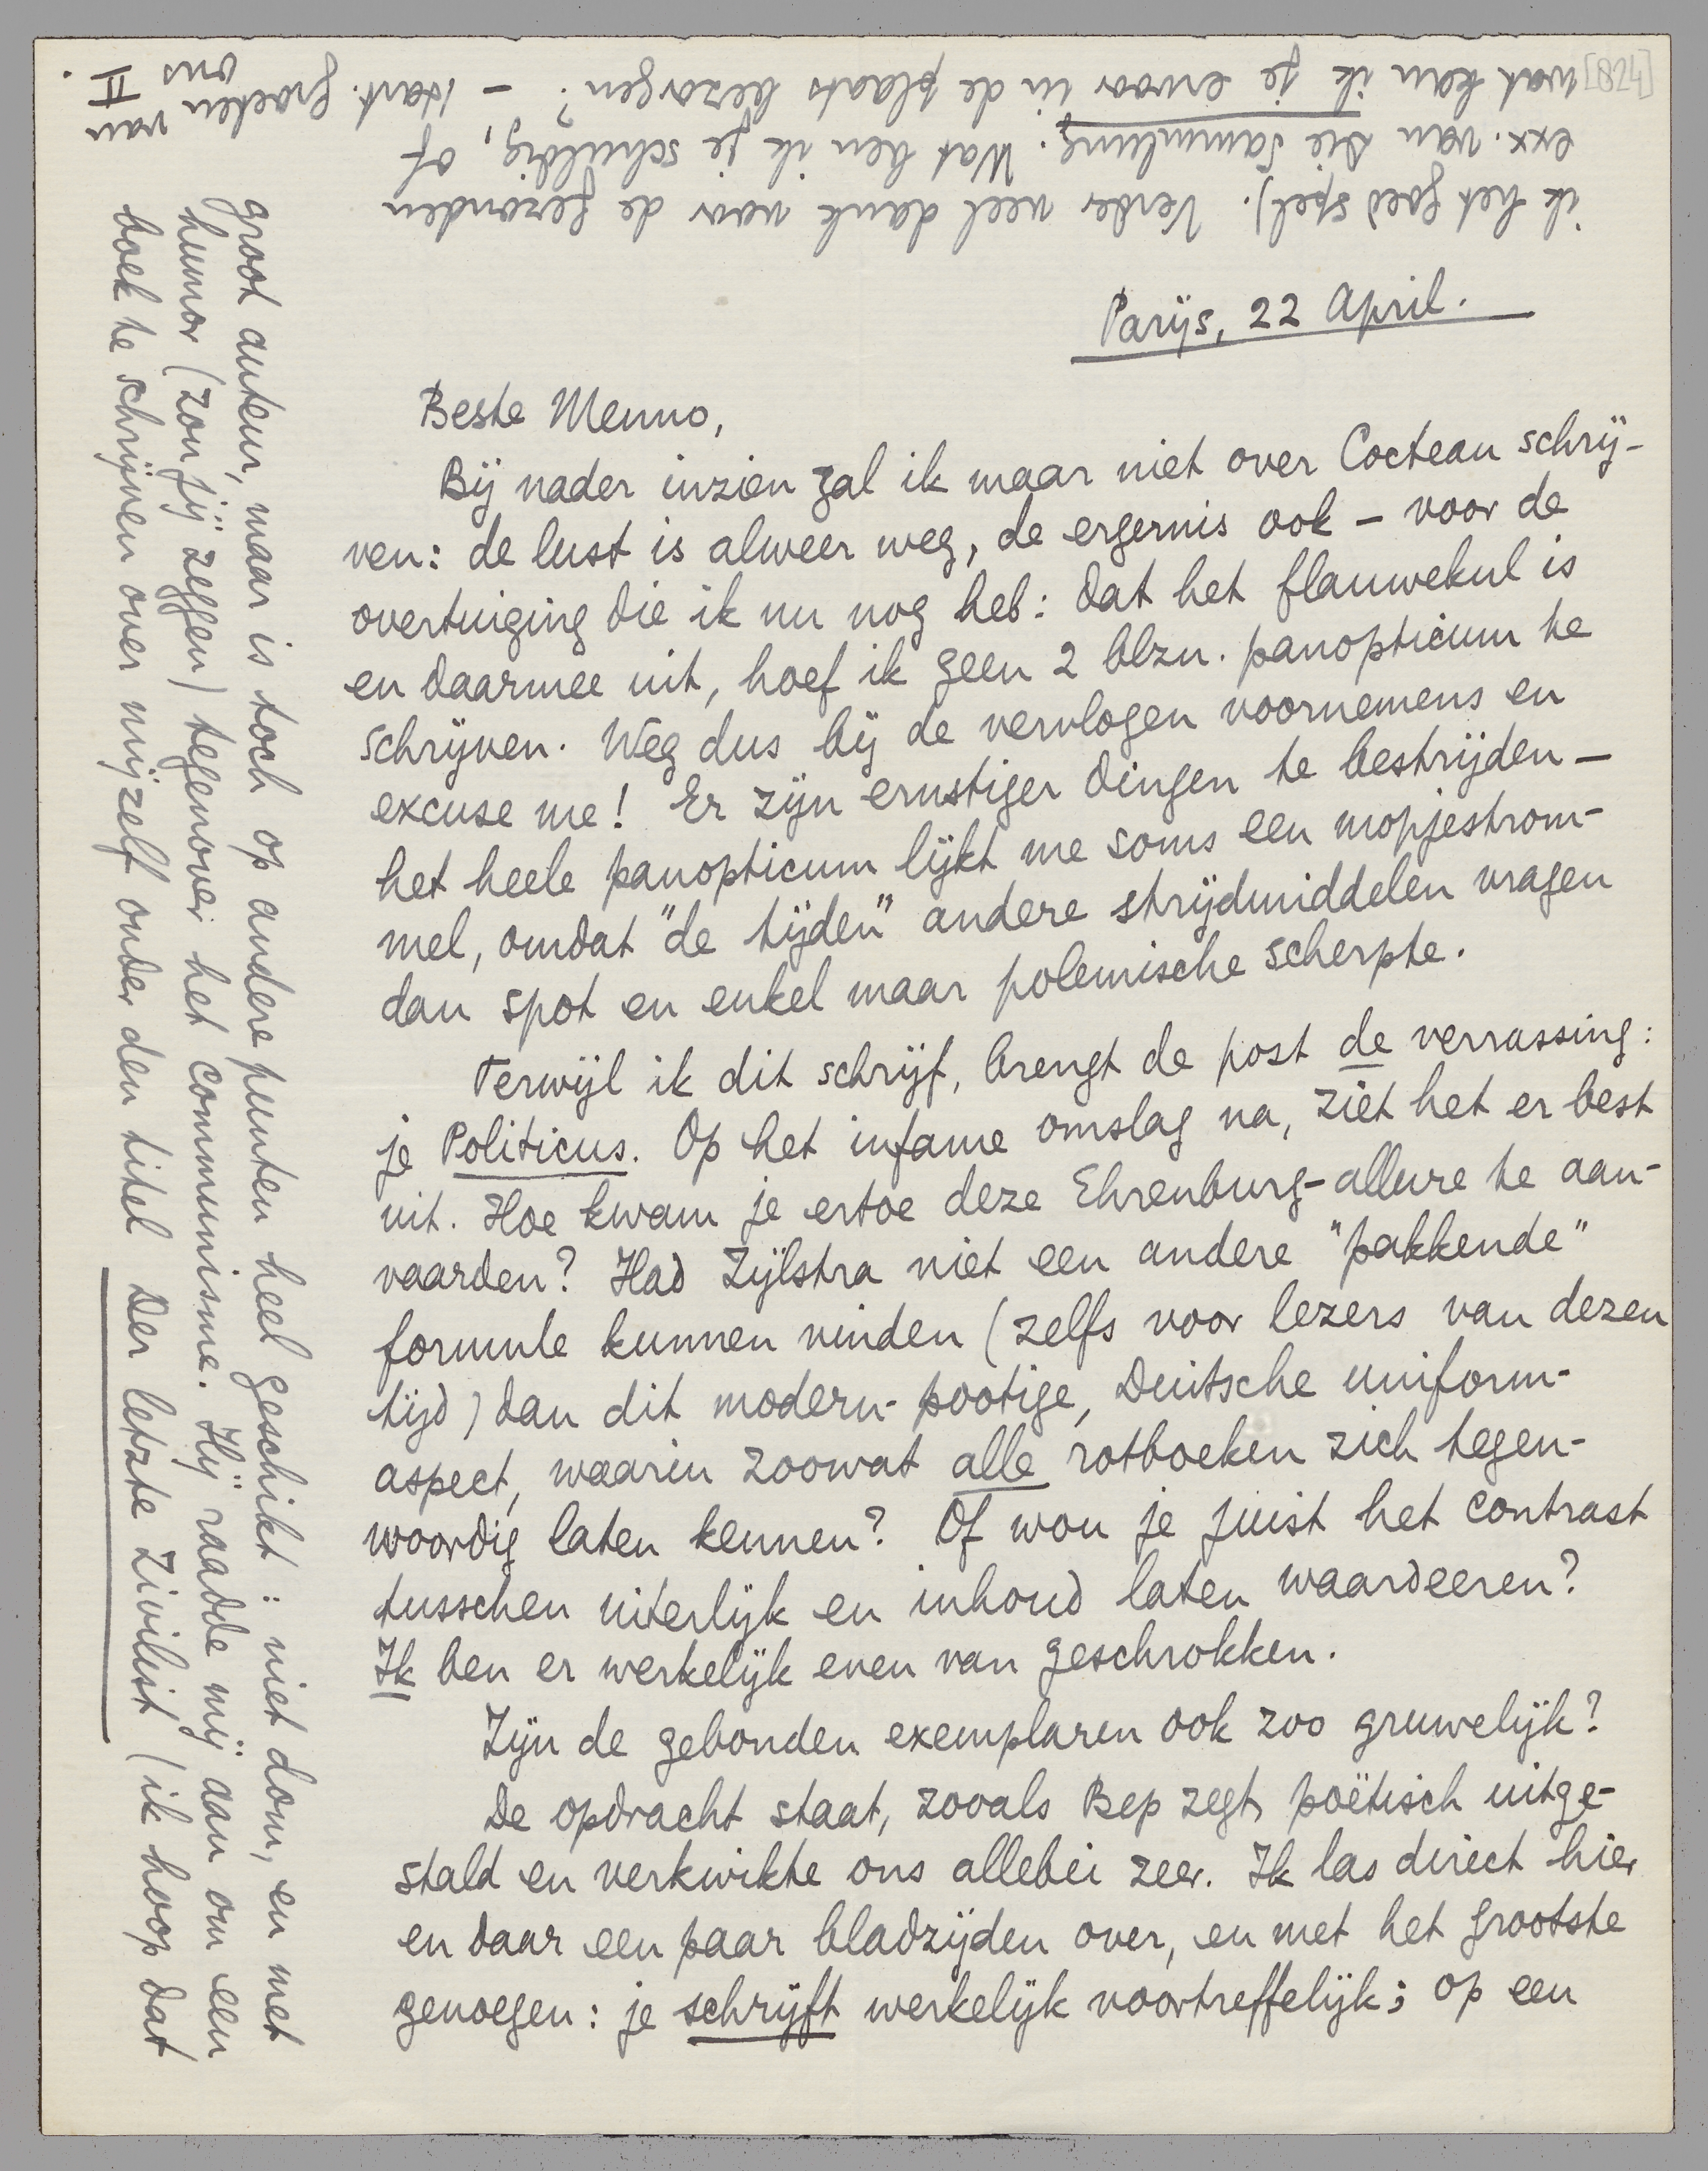 [824]
Parijs, 22 April.
Beste Menno,
Bij nader inzien zal ik maar niet over Cocteau schrij-
ven: de lust is alweer weg, de ergernis ook – voor de
overtuiging die ik nu nog heb: dat het flauwekul is
en daarmee uit, hoef ik geen 2 blzn. panopticum te
schrijven. Weg dus bij de vervlogen voornemens en
excuse me! Er zijn ernstiger dingen te bestrijden –
het heele panopticum lijkt me soms een mopjestrom-
mel, omdat "de tijden" andere strijdmiddelen vragen
dan spot en enkel maar polemische scherpte.
Terwijl ik dit schrijf, brengt de post de verrassing:
je Politicus. Op het infame omslag na, ziet het er best
uit. Hoe kwam je ertoe deze Ehrenburg-allure te aan-
vaarden? Had Zijlstra niet een andere "pakkende"
formule kunnen vinden (zelfs voor lezers van dezen
tijd) dan dit modern-pootige, Duitsche uniform-
aspect, waarin zoowat alle rotboeken zich tegen-
woordig laten kennen? Of wou je juist het contrast
tusschen uiterlijk en inhoud laten waardeeren?
Ik ben er werkelijk even van geschrokken.
Zijn de gebonden exemplaren ook zoo gruwelijk?
De opdracht staat, zooals Bep zegt, poëtisch uitge-
stald en verkwikte ons allebei zeer. Ik las direct hier
en daar een paar bladzijden over, en met het grootste
genoegen: je schrijft werkelijk voortreffelijk; op een
groot auteur, maar is toch op andere punten heel geschikt: niet dom, en met
humor (zou jij zeggen) tegenover het communisme. Hij raadde mij aan om een
boek te schrijven over mijzelf onder den titel Der letzte Zivilist (ik hoop dat
ik het goed spel). Verder veel dank voor de gezonden
exx. van Die Sammlung. Wat ben ik je schuldig, of
wat kan ik je ervoor in de plaats bezorgen? – Hart. groeten van
ons
van
II.